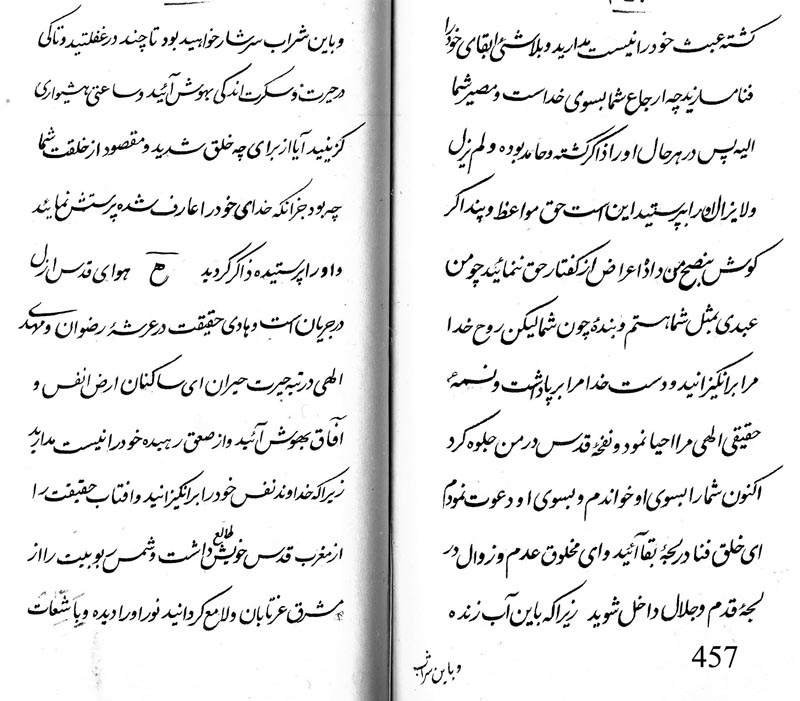 کشته عبث خود را نیست مدارید و بلاشئ ابقای خود را
فنا مسازید چه ارجاع شما بسوی خداست و مصیر شما
الیه پس در هر حال او را ذاکر گشته و حامد بوده و لم یزل
ولا یزال او را بپرستید این است حق مواعظ و پند اگر
گوش بنصیح من داد اعراض از گفتار حق ننمائید چو من
عبدی بمثل شما هستم و بندهٔ چون شما لیکن روح خدا
مرا برانگیزانید و دست خدا مرا برپا داشت و نسمهٔ
حقیقی الهی مرا احیا نمود و نفخهٔ قدس در من جلوه کرد
اکنون شما را بسوی او خواندم و بسوی او دعوت نمودم
ای خلق فنا در لجهٔ بقا آئید و ای مخلوق عدم و زوال در
لجهٔ قدم و جلال داخل شوید زیرا که باین آب زنده
و باین شراب
457
و باین شراب سرشار خواهید بود تا چند در غفلتید و تا کی
در حیرت و سکرت اندکی بهوش آئید و ساعتی هشیواری
گزینید آیا از برای چه خلق شدید و مقصود از خلقت شما
چه بود جز آنکه خدای خود را عارف شده پرستش نمائید
و او را پرستیده ذاکر گردید هع هوای قدس ازل
در جریان است و هادی حقیقت در عرشهٔ رضوان و مهدی
الهی در تبه حیرت حیران ای ساکنان ارض انفس و
آفاق بهوش آئید و از صعق رهیده خود را نیست مدارید
زیرا که خداوند نفس خود را برانگیزانید و افتاب حقیقت را
از مغرب قدس خویش طالع داشت و شمس ربوبیت را از
مشرق عز تابان و لامع گردانید نور او را دیده و با شعات